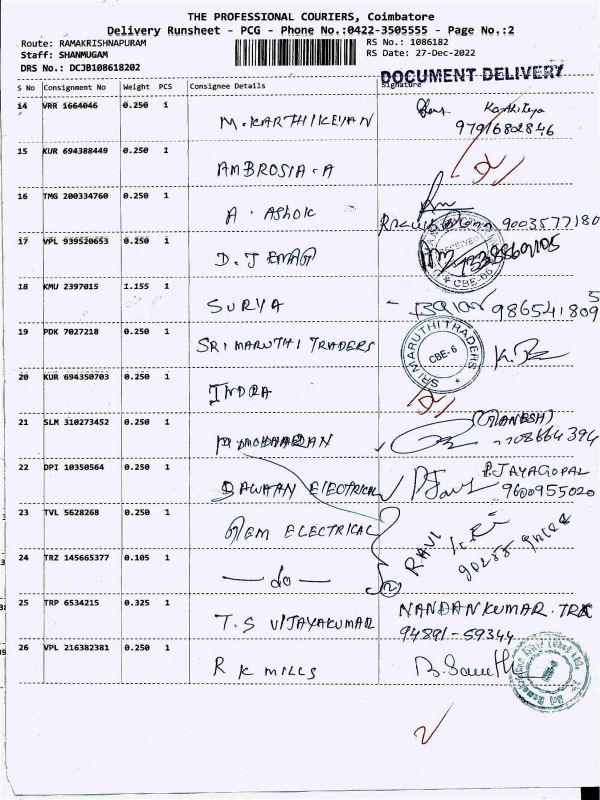 THE PROFESSIONAL COURIERS, Coimbatore
Delivery Runsheet - PCG - Phone No.:0422-3505555 - Page No.:2
Route: RAMAKRISHNAPURAM RS No.: 1086182
Staff: SHANMUGAM RS Date: 27-Dec-2022
DRS No.: DCJB108618202
DOCUMENT DELIVERY
S No Consignment No Weight PCS Consignee Details Signature
14 VRR 1664046 0.250 1 M. KARTHIKEYAN Karthikeya
9791682846
15 KUR 694388449 0.250 1 AMBROSIA. A
16 TMG 200334760 0.250 1 A. ASHOK 9003577180
17 VPL 939520653 0.250 1 D. JEMAG
RECEIVED
CBE-06
18 KMU 2397015 1.155 1 SURYA 9865418095
19 PDK 7027218 0.250 1 SRI MARUTHI TRADERS
SRI MARUTHI TRADERS
CBE-6
20 KUR 694350703 0.250 1 INDRA
21 SLM 310273452 0.250 1 (GANESH)
22 DPI 10350564 0.250 1 ELECTRICAL P. JAYAGOPAL
9600955020
23 TVL 5628268 0.250 1 GEM ELECTRICAL RAVI
24 TRZ 145665377 0.105 1 — do — 2
25 TRP 6534215 0.325 1 T. S VIJAYAKUMAR NANDAN KUMAR. TR
94891-59344
26 VPL 216382381 0.250 1 R K MILLS